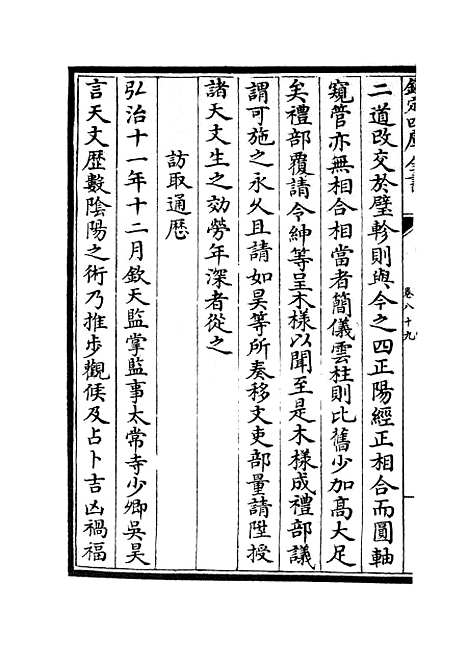 欽定四庫全書
卷八十九
二道改交於壁軫則與今之四正陽經正相合而圓軸
窺管亦無相合相當者簡儀雲柱則比舊少加高大足
矣禮部覆請令紳等呈木樣以聞至是木樣成禮部議
謂可施之永久且請如昊等所奏移文吏部量請陞授
諸天文生之効勞年深者從之
訪取通厯
弘治十一年十二月欽天監掌監事太常寺少卿吳昊
言天文歷數陰陽之術乃推步觀候及占卜吉凶禍福